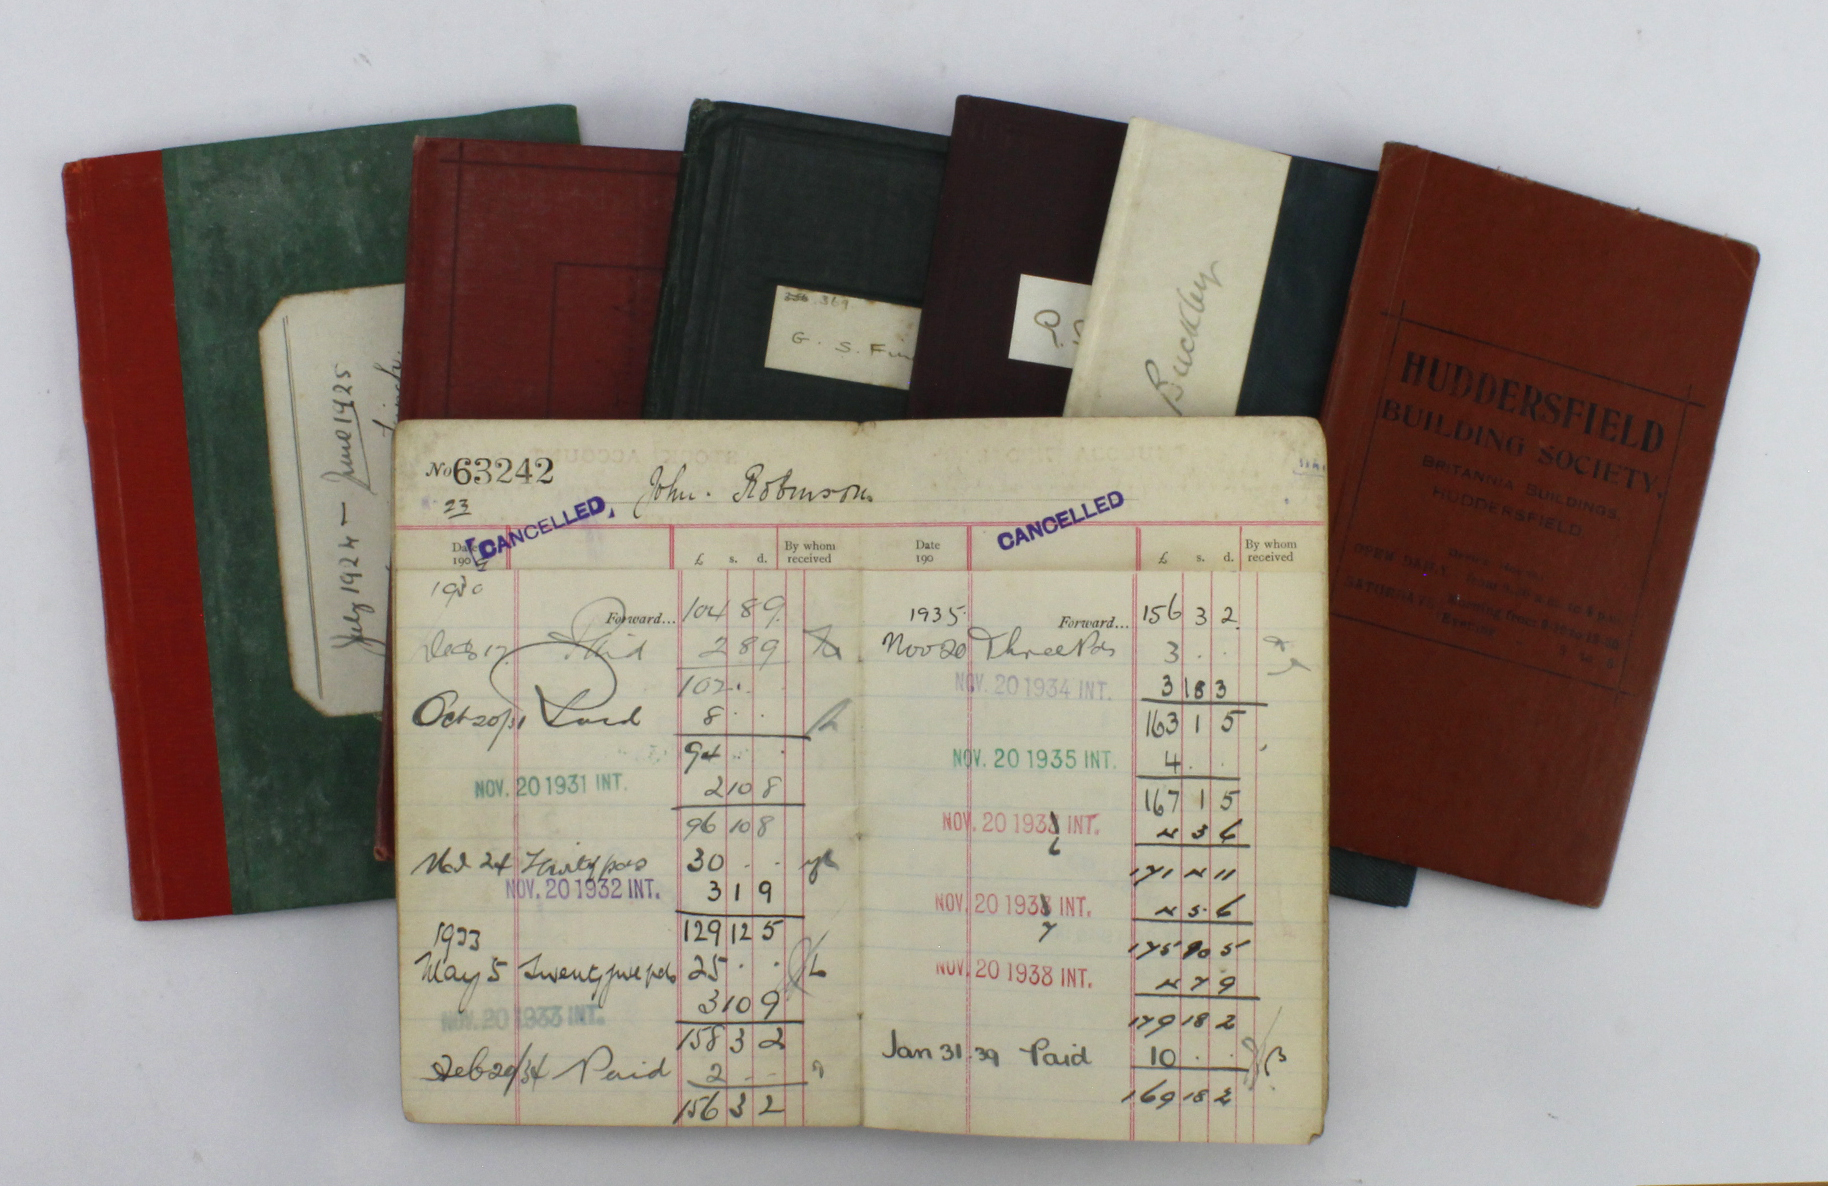 July 1924 — June 1925
369
G. S.
Buckley
HUDDERSFIELD
BUILDING SOCIETY,
BRITANNIA BUILDINGS,
HUDDERSFIELD
OPEN DAILY
No 63242
John. Robinson
23
CANCELLED
CANCELLED
Date 190 £ s. d. By whom received
1930
Forward... 104 8 9
Dec 17 Paid 2 8 9
102 . .
Oct 20/31 Paid 8 . .
94 . .
NOV. 20 1931 INT. 2 10 8
96 10 8
24 Thirty pds 30 . .
NOV. 20 1932 INT. 3 1 9
129 12 5
1933
May 5 Twenty five pds 25 . .
NOV. 20 1933 INT. 3 10 9
158 3 2
Feb 20/34 Paid 2 . .
156 3 2
Date 190 £ s. d. By whom received
1935 Forward... 156 3 2
Nov 20 Three Pds 3 . .
NOV. 20 1934 INT. 3 18 3
163 1 5
NOV. 20 1935 INT. 4 . .
167 1 5
NOV. 20 1936 INT. 4 3 6
171 4 11
NOV. 20 1937 INT. 4 5 6
175 10 5
NOV. 20 1938 INT. 4 7 9
179 18 2
Jan 31 39 Paid 10 . .
169 18 2